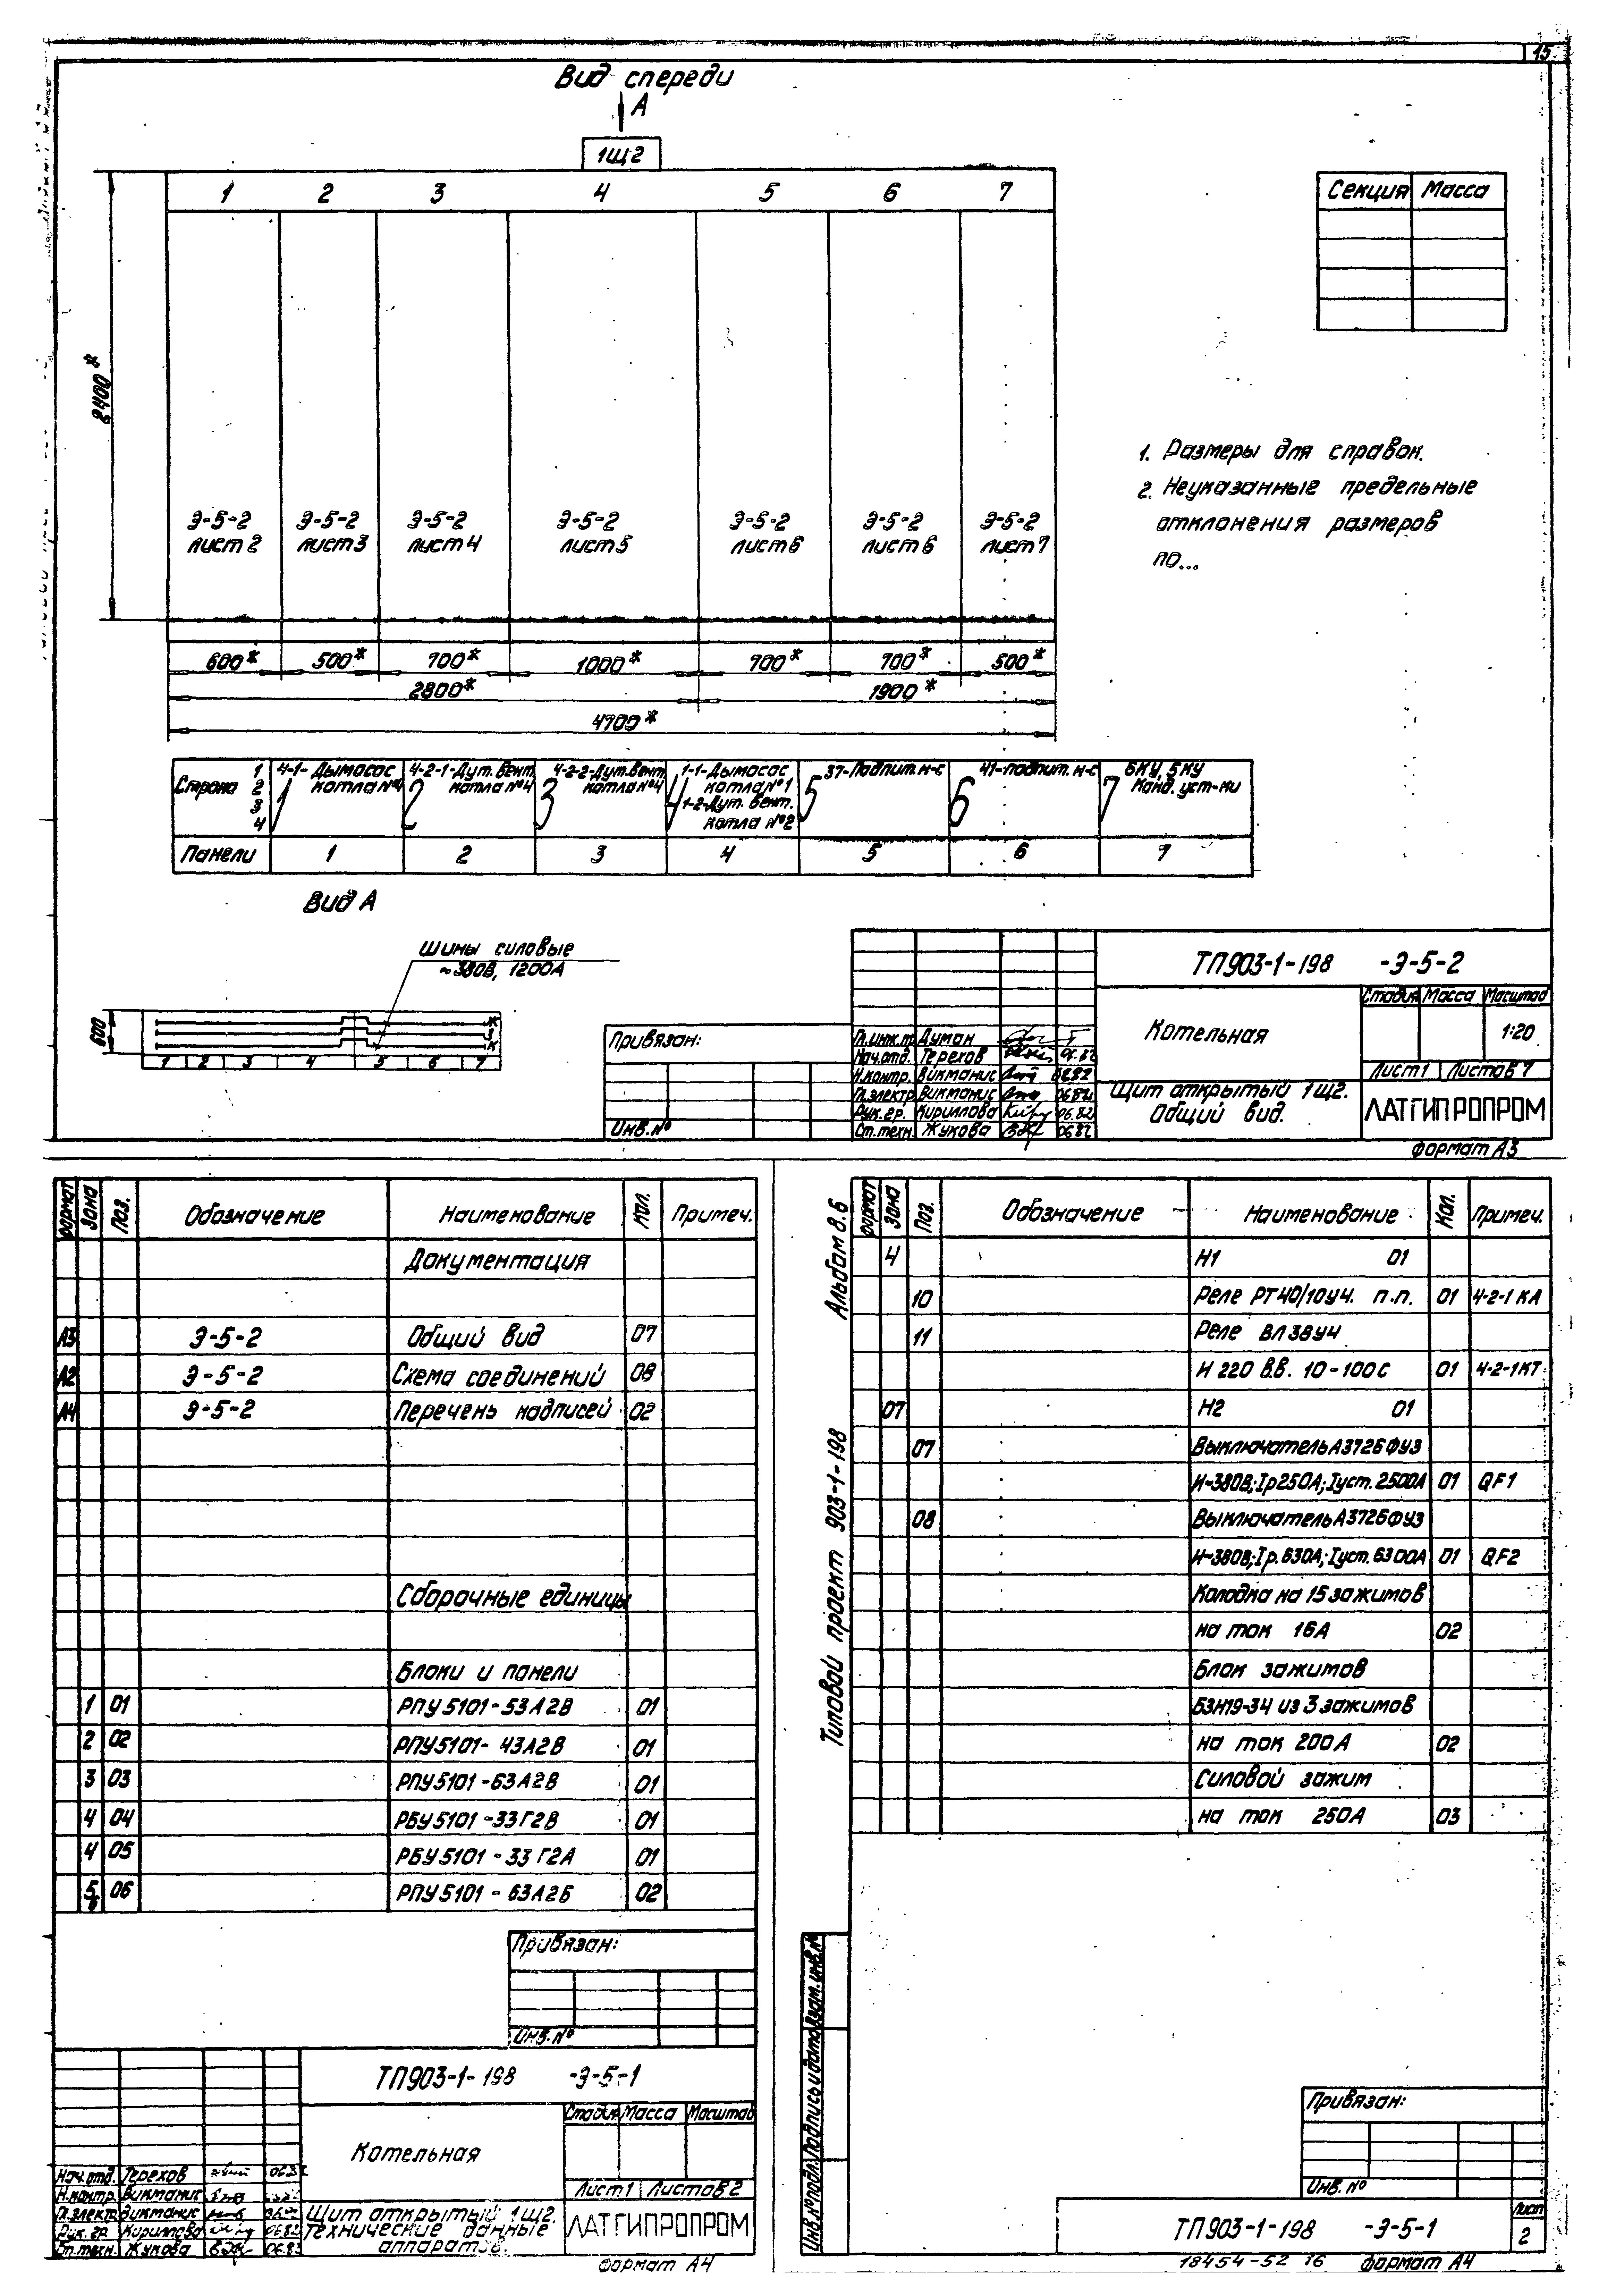 15
Вид спереди
А
1Щ2
1 2 3 4 5 6 7
Секция Масса
2400*
1. Размеры для справок.
2. Неуказанные предельные
отклонения размеров
по...
Э-5-2 Э-5-2 Э-5-2 Э-5-2 Э-5-2 Э-5-2 Э-5-2
лист 2 лист 3 лист 4 лист 5 лист 6 лист 6 лист 7
600* 500* 700* 1000* 700* 700* 500*
2800* 1900*
4700*
Сторона 1 2 3 4
1 4-1-Дымосос котла №4
2 4-2-1-Дут. вент. котла №4
3 4-2-2-Дут. вент. котла №4
4 1-1-Дымосос котла №1
1-2-Дут. вент. котла №2
5 37-Подпит. н-с
6 41-подпит. н-с
7 БКУ, 5КУ Конд. уст-ки
Панели 1 2 3 4 5 6 7
Вид А
Шины силовые
~380В, 1200А
600
1 2 3 4 5 6 7
Привязан:
Инв.№
Гл.инж.пр. Думан
Нач.отд. Терехов 06.82
Н.контр. Викманис 06.82
Гл.электр. Викманис 06.82
Рук.гр. Кириллова 06.82
Ст.техн. Жукова 06.82
ТП903-1-198 -Э-5-2
Котельная
Стадия Масса Масштаб
1:20
Лист 1 Листов 7
Щит открытый 1Щ2.
Общий вид.
ЛАТГИПРОПРОМ
формат А3
Формат Зона Поз. Обозначение Наименование Кол. Примеч.
Документация
А3 Э-5-2 Общий вид 07
А2 Э-5-2 Схема соединений 08
А4 Э-5-2 Перечень надписей 02
Сборочные единицы
Блоки и панели
1 01 РПУ5101-53А2В 01
2 02 РПУ5101-43А2В 01
3 03 РПУ5101-63А2В 01
4 04 РБУ5101-33Г2В 01
4 05 РБУ5101-33Г2А 01
5/6 06 РПУ5101-63А2Б 02
Привязан:
Инв.№
ТП903-1-198 -Э-5-1
Котельная
Стадия Масса Масштаб
Лист 1 Листов 2
Нач.отд. Терехов 06.82
Н.контр. Викманис
Гл.электр. Викманис
Рук.гр. Кириллова 06.82
Ст.техн. Жукова 06.82
Щит открытый 1Щ2.
Технические данные
аппаратов.
ЛАТГИПРОПРОМ
формат А4
Типовой проект 903-1-198 Альбом 8.6
Формат Зона Поз. Обозначение Наименование Кол. Примеч.
4 Н1 01
10 Реле РТ40/10У4. п.п. 01 4-2-1КА
11 Реле ВЛ38У4
И 220 В.В. 10-100С 01 4-2-1КТ
07 Н2 01
07 Выключатель А3726ФУЗ
И~380В; Iр250А; Iуст. 2500А 01 QF1
08 Выключатель А3726ФУЗ
И~380В; Iр.630А; Iуст. 6300А 01 QF2
Колодка на 15 зажимов
на ток 16А 02
Блок зажимов
БЗН19-34 из 3 зажимов
на ток 200А 02
Силовой зажим
на ток 250А 03
Инв.№подл. Подпись и дата Взам.инв.№
Привязан:
Инв.№
ТП903-1-198 -Э-5-1
Лист
2
18454-52 16 формат А4